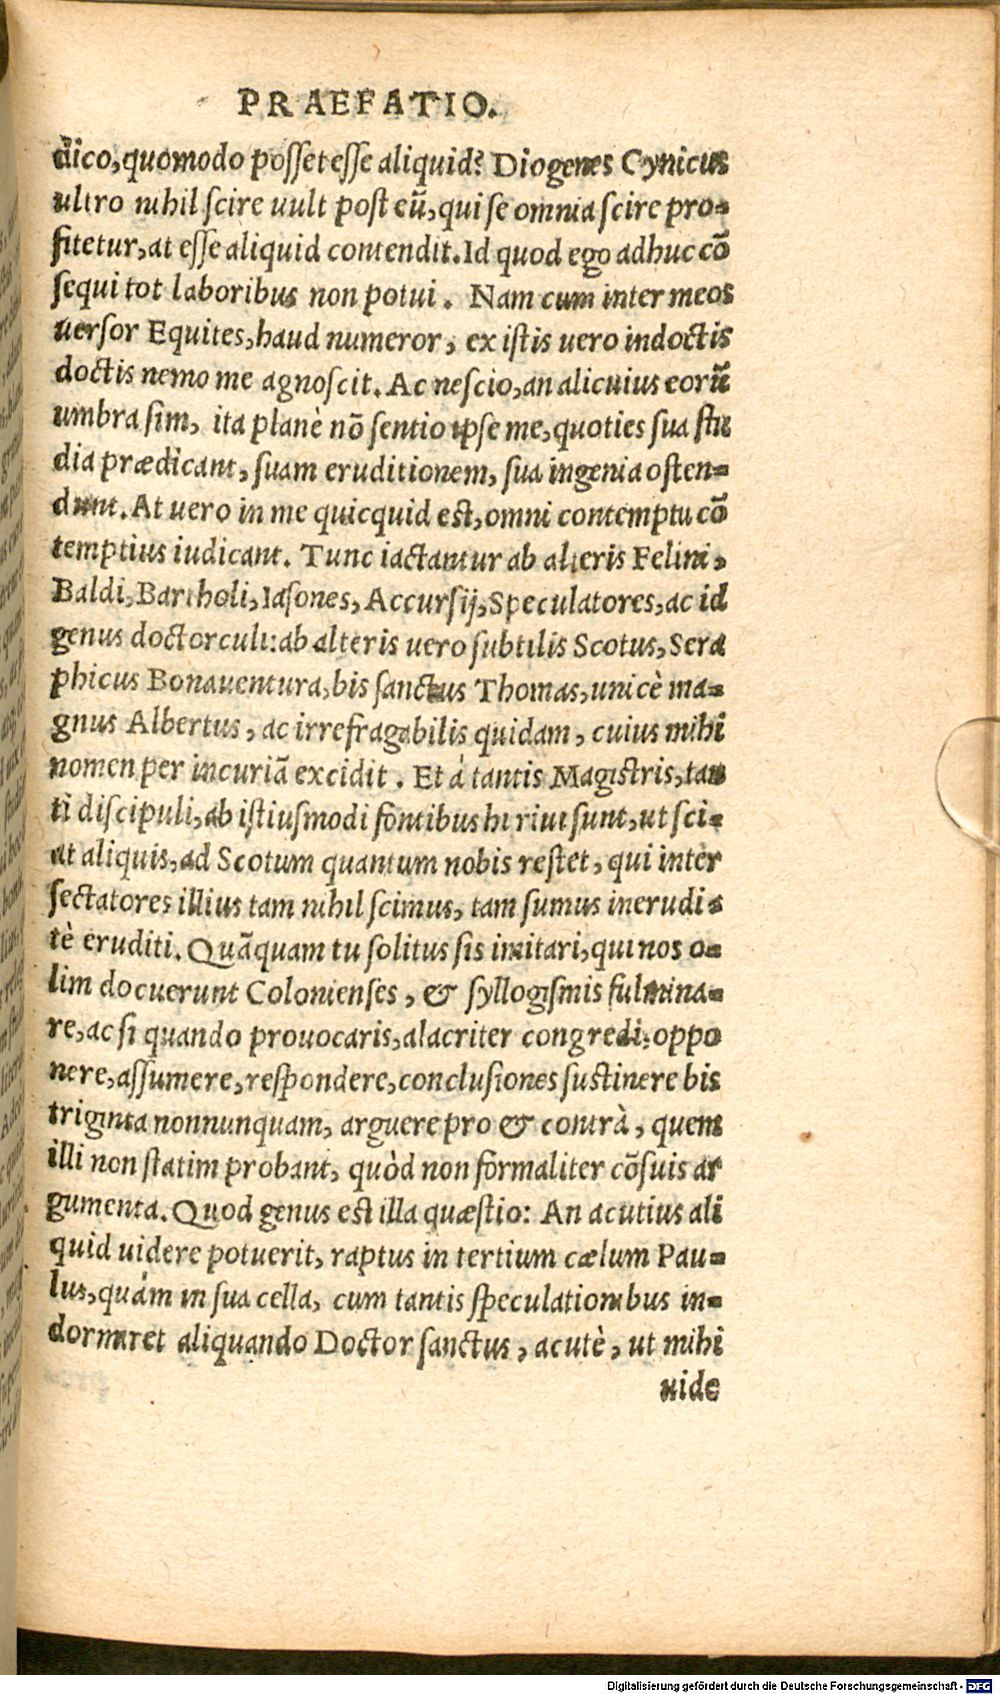 PRAEFATIO.
dico, quomodo posset esse aliquid? Diogenes Cynicus
ultro nihil scire uult post eũ, qui se omnia scire pro-
fitetur, at esse aliquid contendit. Id quod ego adhuc cõ
sequi tot laboribus non potui. Nam cum inter meos
uersor Equites, haud numeror, ex istis uero indoctis
doctis nemo me agnoscit. Ac nescio, an alicuius eorũ
umbra sim, ita planè nõ sentio ipse me, quoties sua stu
dia prædicant, suam eruditionem, sua ingenia osten-
dunt. At uero in me quicquid est, omni contemptu cõ
temptius iudicant. Tunc iactantur ab alteris Felini,
Baldi, Bartholi, Iasones, Accursij, Speculatores, ac id
genus doctorculi: ab alteris uero subtilis Scotus, Sera
phicus Bonauentura, bis sanctus Thomas, unicè ma-
gnus Albertus, ac irrefragabilis quidam, cuius mihi
nomen per incuriã excidit. Et à tantis Magistris, tan
ti discipuli, ab istiusmodi fontibus hi riui sunt, ut sci-
at aliquis, ad Scotum quantum nobis restet, qui inter
sectatores illius tam nihil scimus, tam sumus inerudi-
tè eruditi. Quãquam tu solitus sis imitari, qui nos o-
lim docuerunt Colonienses, & syllogismis fulmina-
re, ac si quando prouocaris, alacriter congredi: oppo
nere, assumere, respondere, conclusiones sustinere bis
triginta nonnunquam, arguere pro & contrà, quem
illi non statim probant, quòd non formaliter cõsuis ar
gumenta. Quod genus est illa quæstio: An acutius ali
quid uidere potuerit, raptus in tertium cælum Pau-
lus, quàm in sua cella, cum tantis speculationibus in-
dormiret aliquando Doctor sanctus, acutè, ut mihi
uide
Digitalisierung gefördert durch die Deutsche Forschungsgemeinschaft - DFG